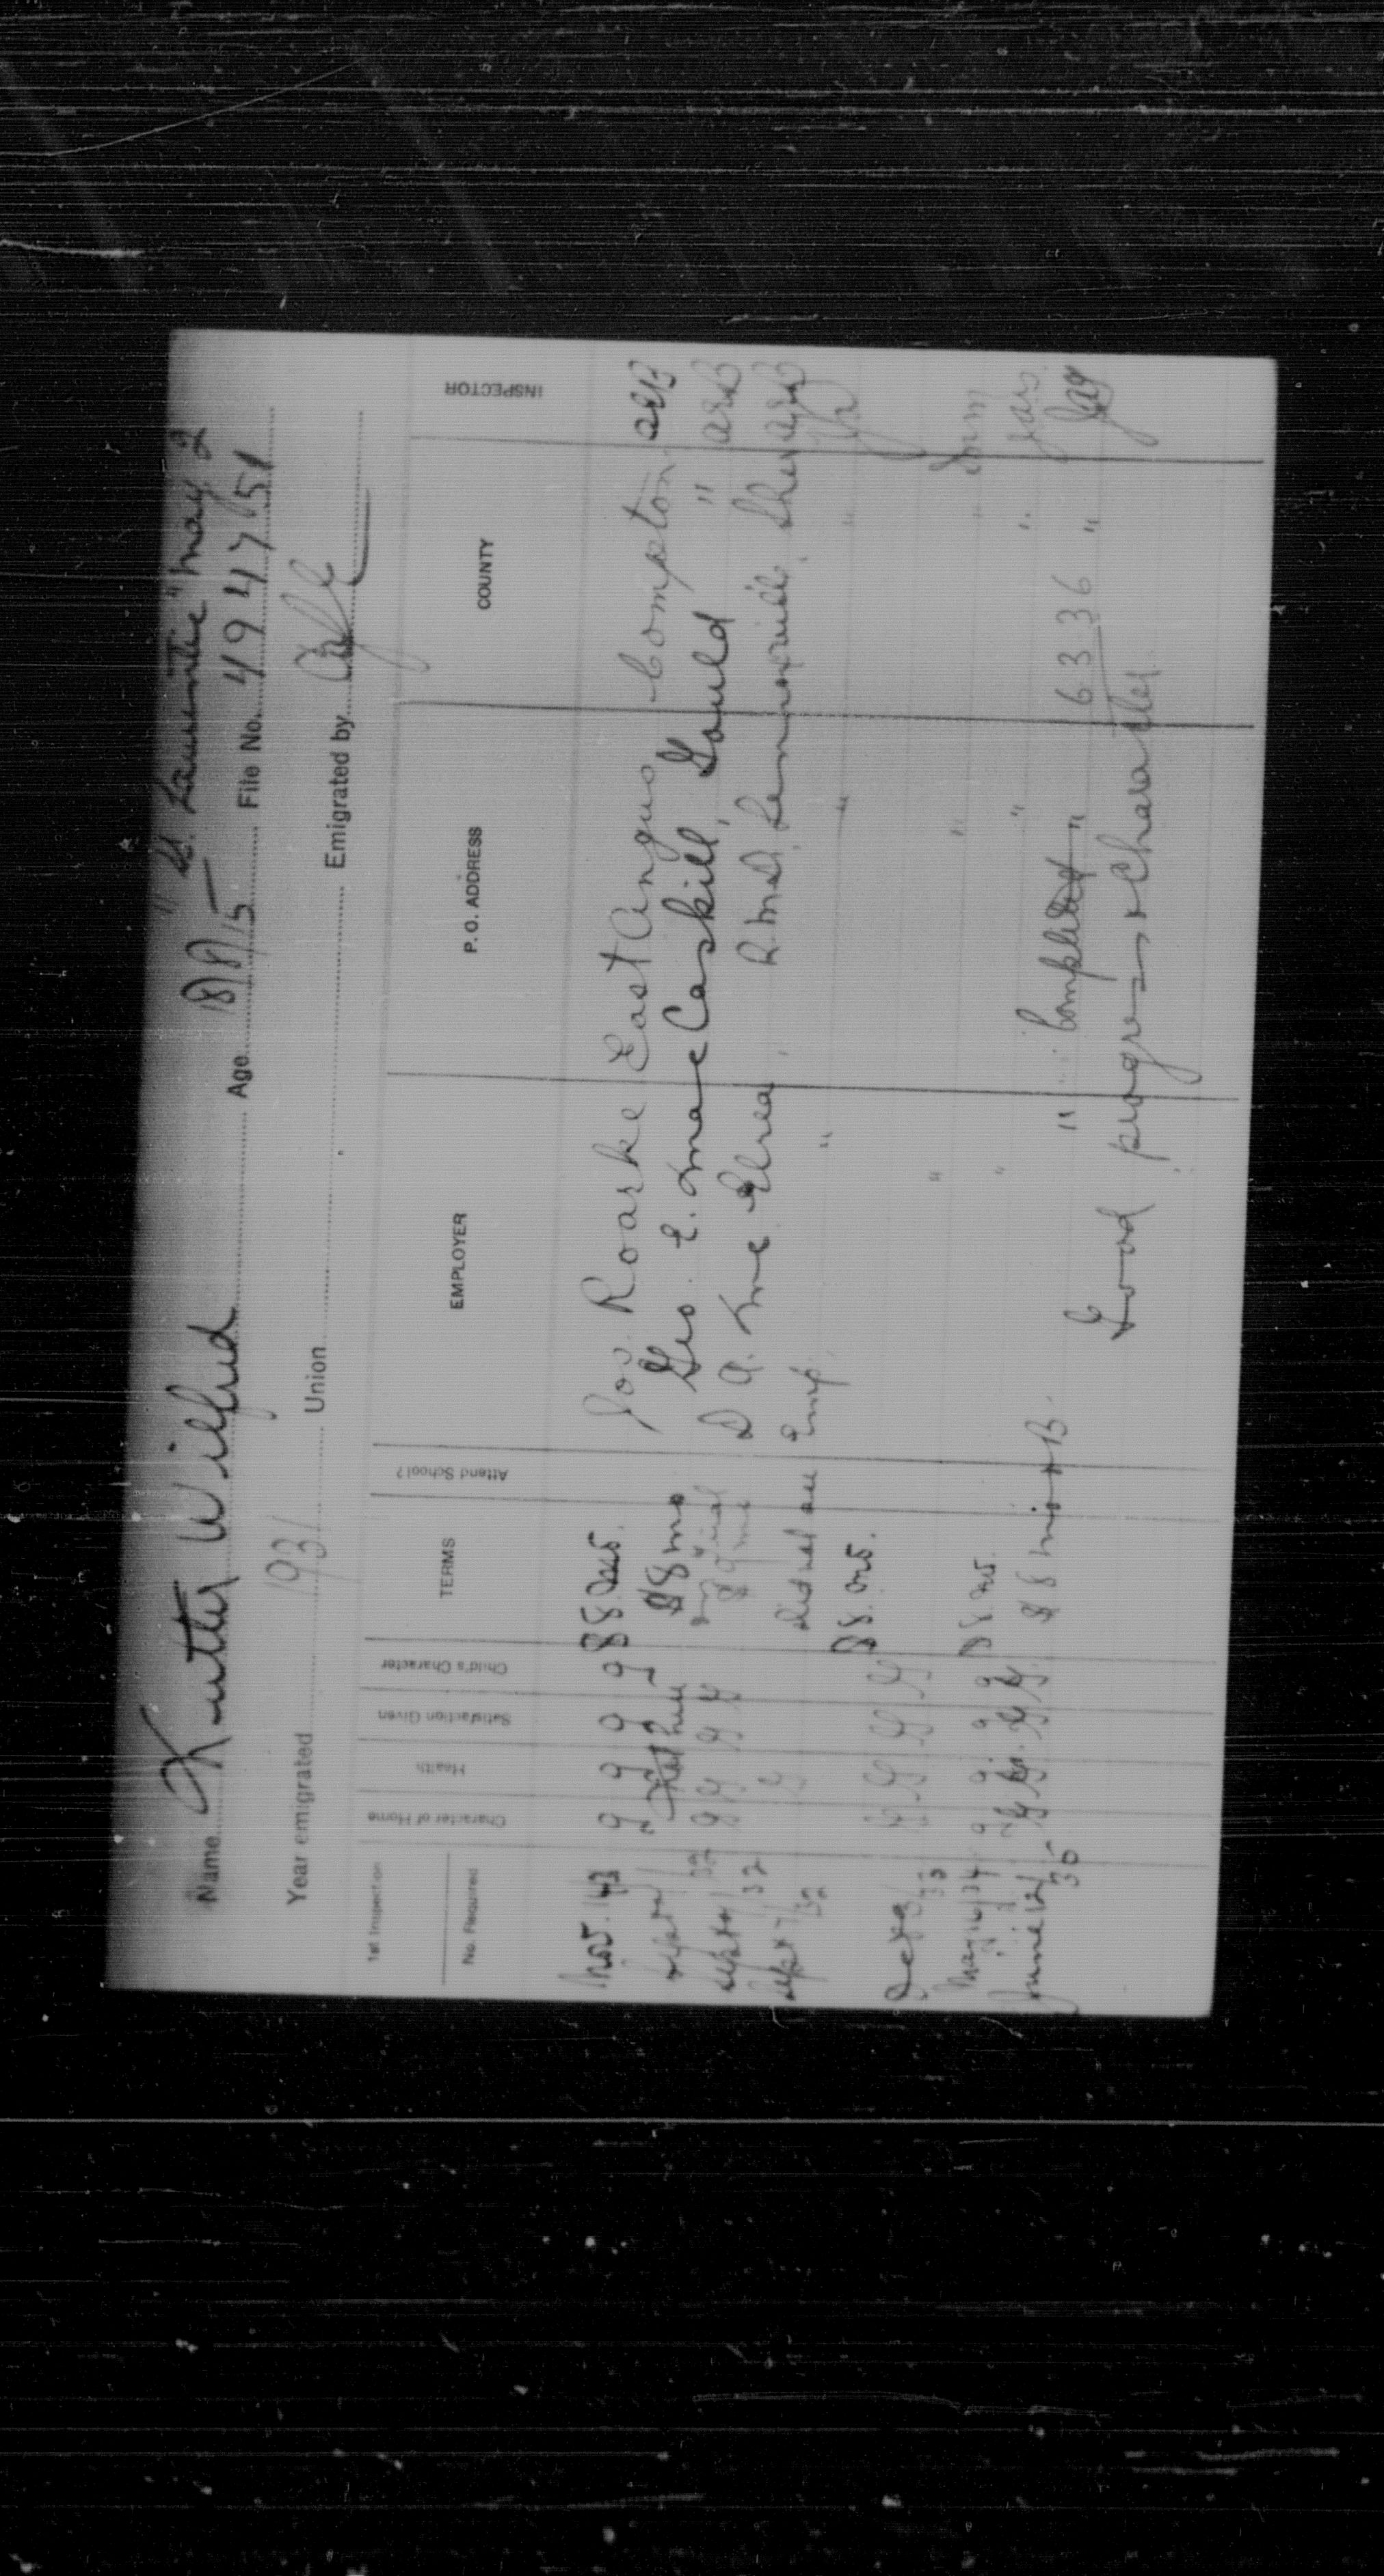 "Laurentic" May 2
Name Kutter Wilfred Age 18/8/15 File No. 494751
Year emigrated 1931 Union Emigrated by
1st Inspection
No. Required
Character of Home Health Satisfaction Given Child's Character TERMS Attend School? EMPLOYER P. O. ADDRESS COUNTY INSPECTOR
Nov. g g g g $8. Jos. Roarke East Angus Compton
Sept 32 $8 mo Geo. E. MacCaskill, Gould " ARB
Sept 32 G G D A. McElrea R.M.D. Lennoxville, Sher ARB
Sept 32 G Did not see Emp. " " "
Oct 3/33 G G G G $8. mo.
May 16/34 g g g g $8. mo. " " "
" " "
June 12/35 G G G G $8 mo & B. " Completed " 6336 " JAG
Good progress & Character